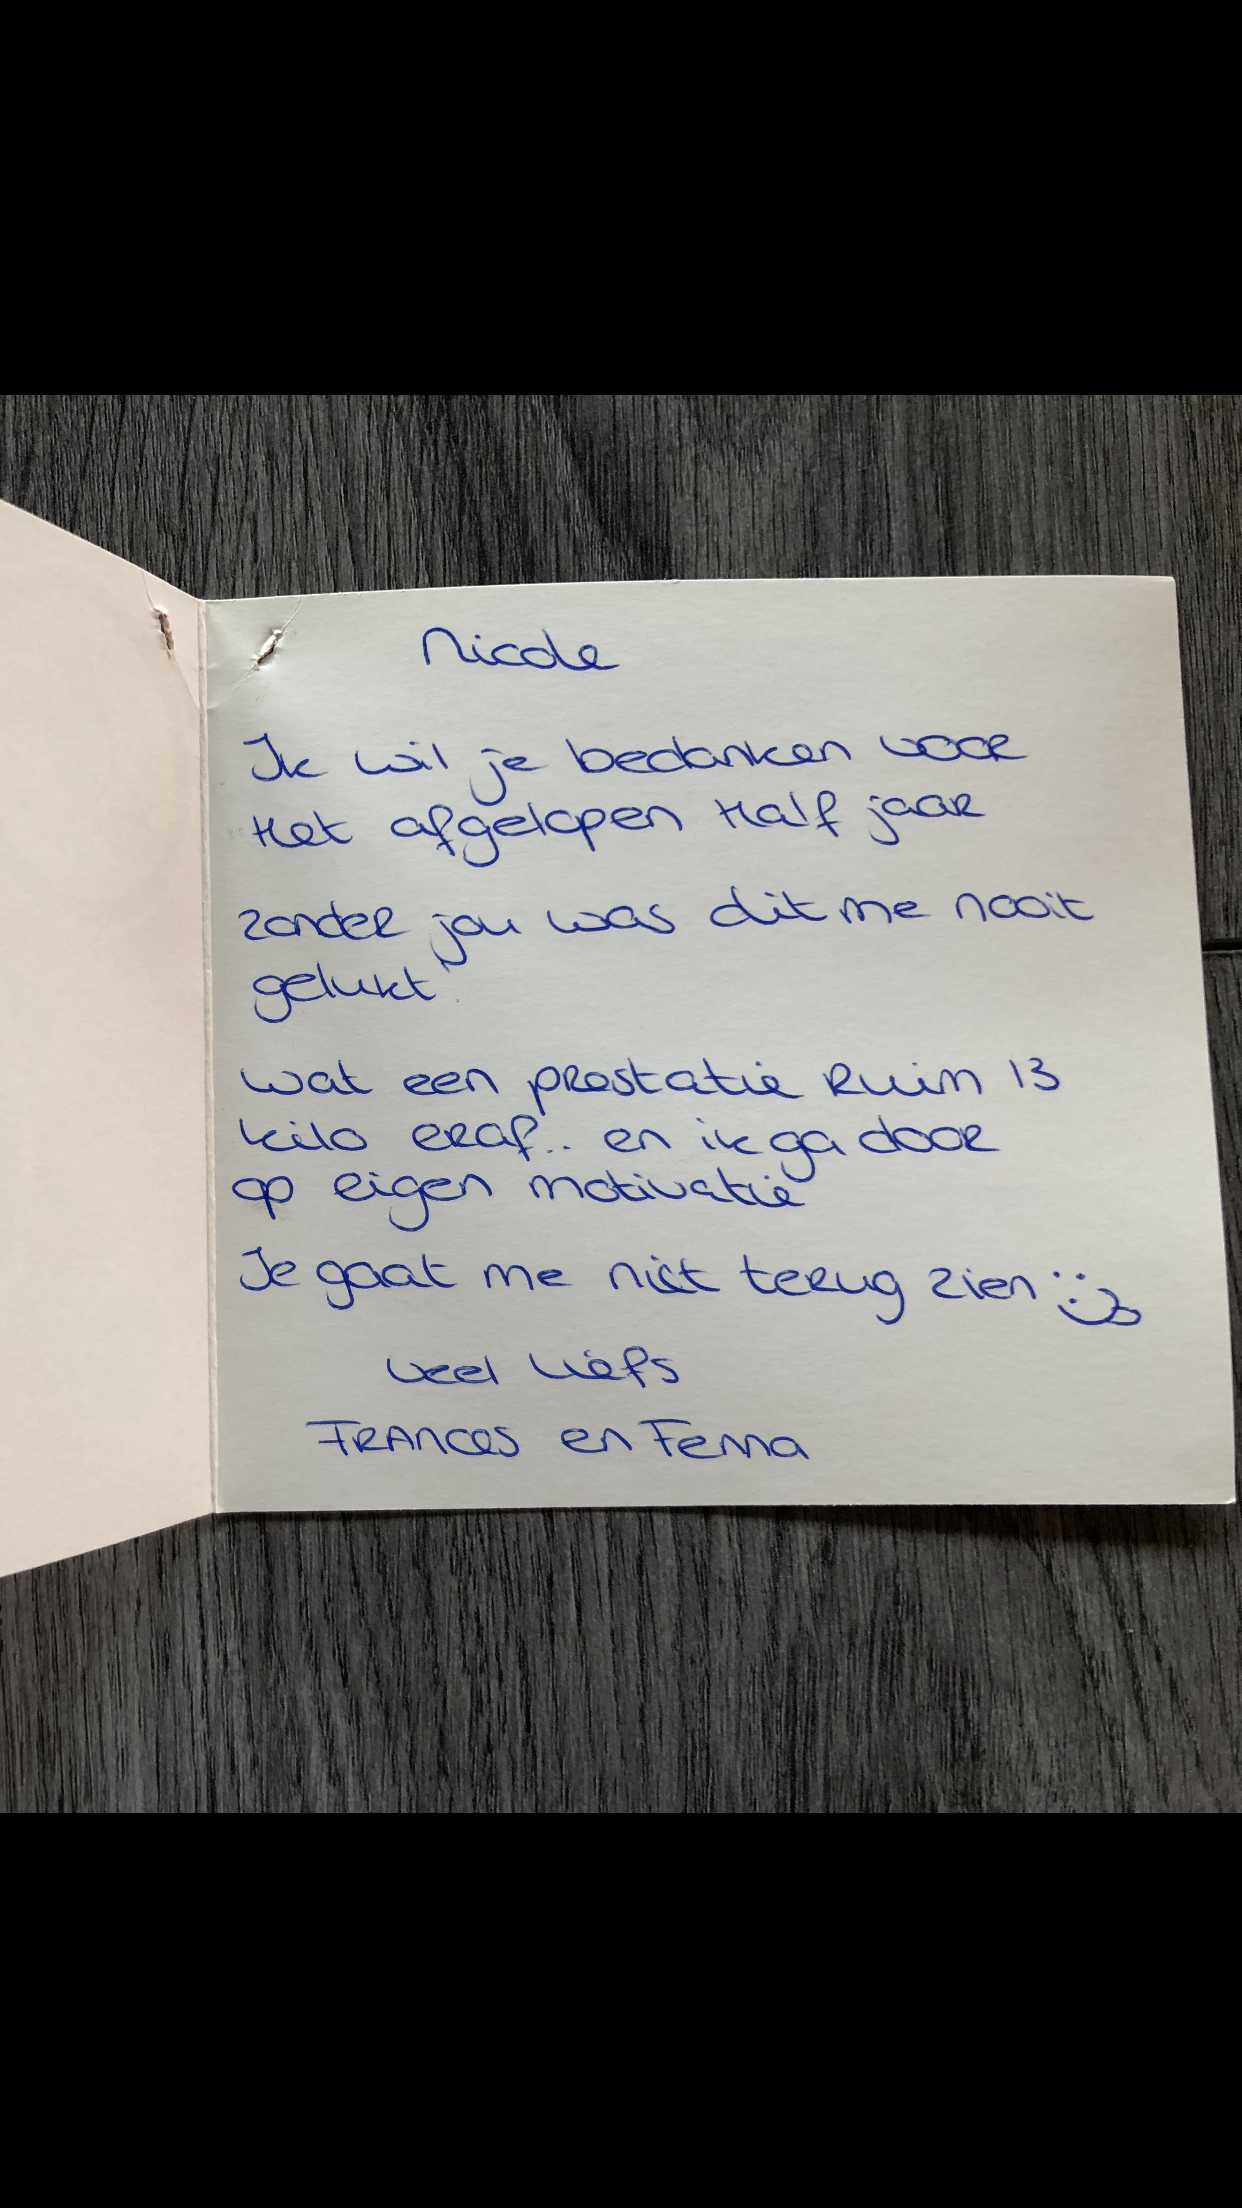 Nicole
Ik wil je bedanken voor
Het afgelopen Half jaar
zonder jou was dit me nooit
gelukt!
wat een prestatie Ruim 13
kilo eraf.. en ik ga door
op eigen motivatie
Je gaat me niet terug zien :)
veel liefs
FRANCES en Fenna